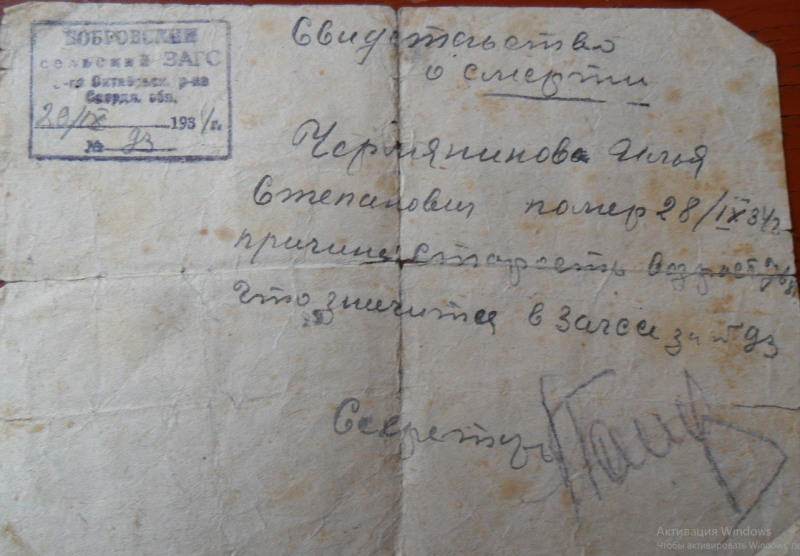 БОБРОВСКИЙ
сельский ЗАГС
-го Октябрьск. р-на
Свердл. обл.
28/IX 1934 г.
№ 93
Свидетельство
о смерти
Чермянинов Илья
Степанович помер 28/IX 34 г.
причина старость возраст
что значится в Загсе за № 93
Секретарь
Активация Windows
Чтобы активировать Windows, пе